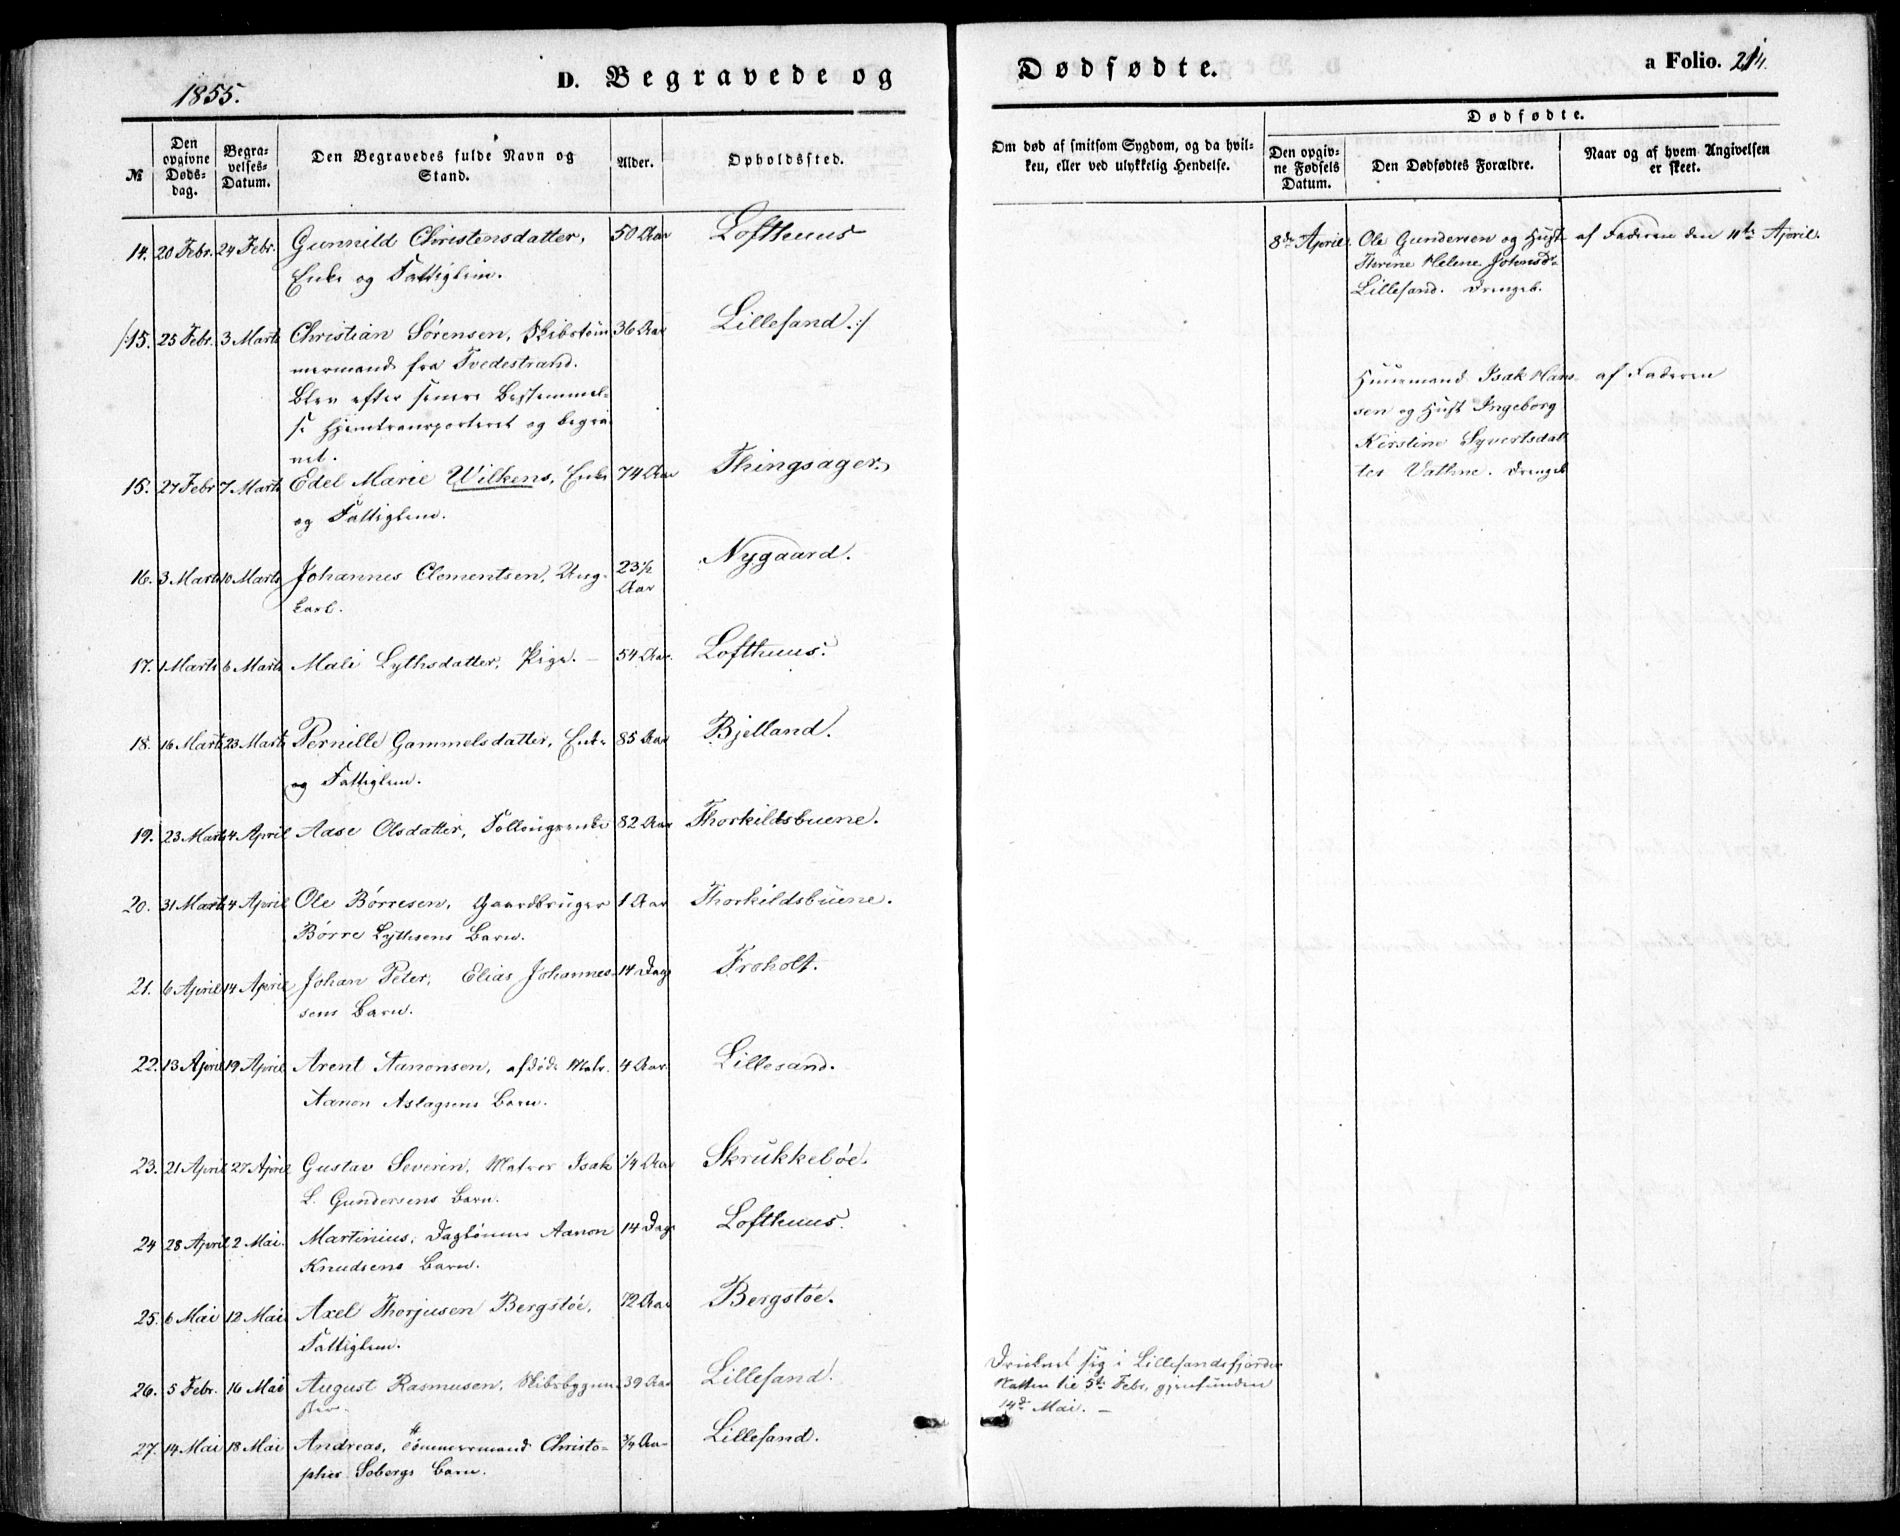 1855.
D. Begravede og
Dødfødte.
a Folio. 214.
№
Den opgivne Døds-dag.
Begra-velses-Datum.
Den Begravedes fulde Navn og Stand.
Alder.
Opholdssted.
Om død af smitsom Sygdom, og da hvil-
ken, eller ved ulykkelig Hendelse.
Dødfødte.
Den opgiv-
ne Fødsels
Datum.
Den Dødfødtes Forældre.
Naar og af hvem Angivelsen
er skeet.
14. 20 Febr. 24 Febr. Gunnild Christensdatter, 50 Aar Lofthuus
Enke og Fattiglem.
/:15. 25 Febr. 3 Marts Christian Sørensen, Skibstøm 36 Aar Lillesand.:/
mermand fra Tvedestrand.
Blev efter senere Bestemmel-
se hjemtransporteret og begra-
vet.
15. 27 Febr 7 Marts Edel Marie Wilkens, Enke 74 Aar Thingsager.
og Fattiglem.
16. 3 Marts 10 Marts Johannes Clementsen, Ung- 23½ Aar Nygaard.
karl.
17. 1 Marts 6 Marts Mali Lythsdatter, Pige. – 54 Aar. Lofthuus.
18. 16 Marts 23 Marts Pernille Gammelsdatter, Enke 85 Aar Bjelland.
og Fattiglem.
19. 23 Marts 4 April Aase Olsdatter, Follougsenke 82 Aar Thorkildsbuene.
20. 31 Marts 4 April Ole Børresen, Gaardbruger 1 Aar Thorkildsbuene.
Børre Lythsens Barn.
21. 6 April 14 April Johan Peter, Elias Johannes- 14 Dage Froholt.
sens Barn.
22. 13 April 19 April Arent Aanonsen, afdøde Matr. 4 Aar. Lillesand.
Aanon Aslagsens Barn.
23. 21 April 27 April Gustav Severin, Matros Isak ¼ Aar Skrukkebøe.
L. Gundersens Barn.
24 28 April 2 Mai. Martinius, Daglønner Aanon 14 Dage Lofthuus.
Knudsens Barn.
25. 6 Mai 12 Mai Axel Thorjusen Bergstøe, 72 Aar Bergstøe.
Fattiglem.
26. 5 Febr. 16 Mai August Rasmusen, Skibsbygme- 39 Aar Lillesand.
ster.
27. 14 Mai 18 Mai Andreas, Tømmermand Christo- ¾ Aar Lillesand.
pher Sobergs Barn.
8de April. Ole Gundersen og Hust- af Faderen den 11te April.
Thrine Helene Johnsd.
Lillesand. Drengeb.
Huusmand Isak Han- af Faderen
sen og Hust Ingeborg
Kirstine Syvertsdat-
ter Vathne. Drengeb
Druknet sig i Lillesandsfjorden
Natten til 5te Febr, gjenfunden
14de Mai. –